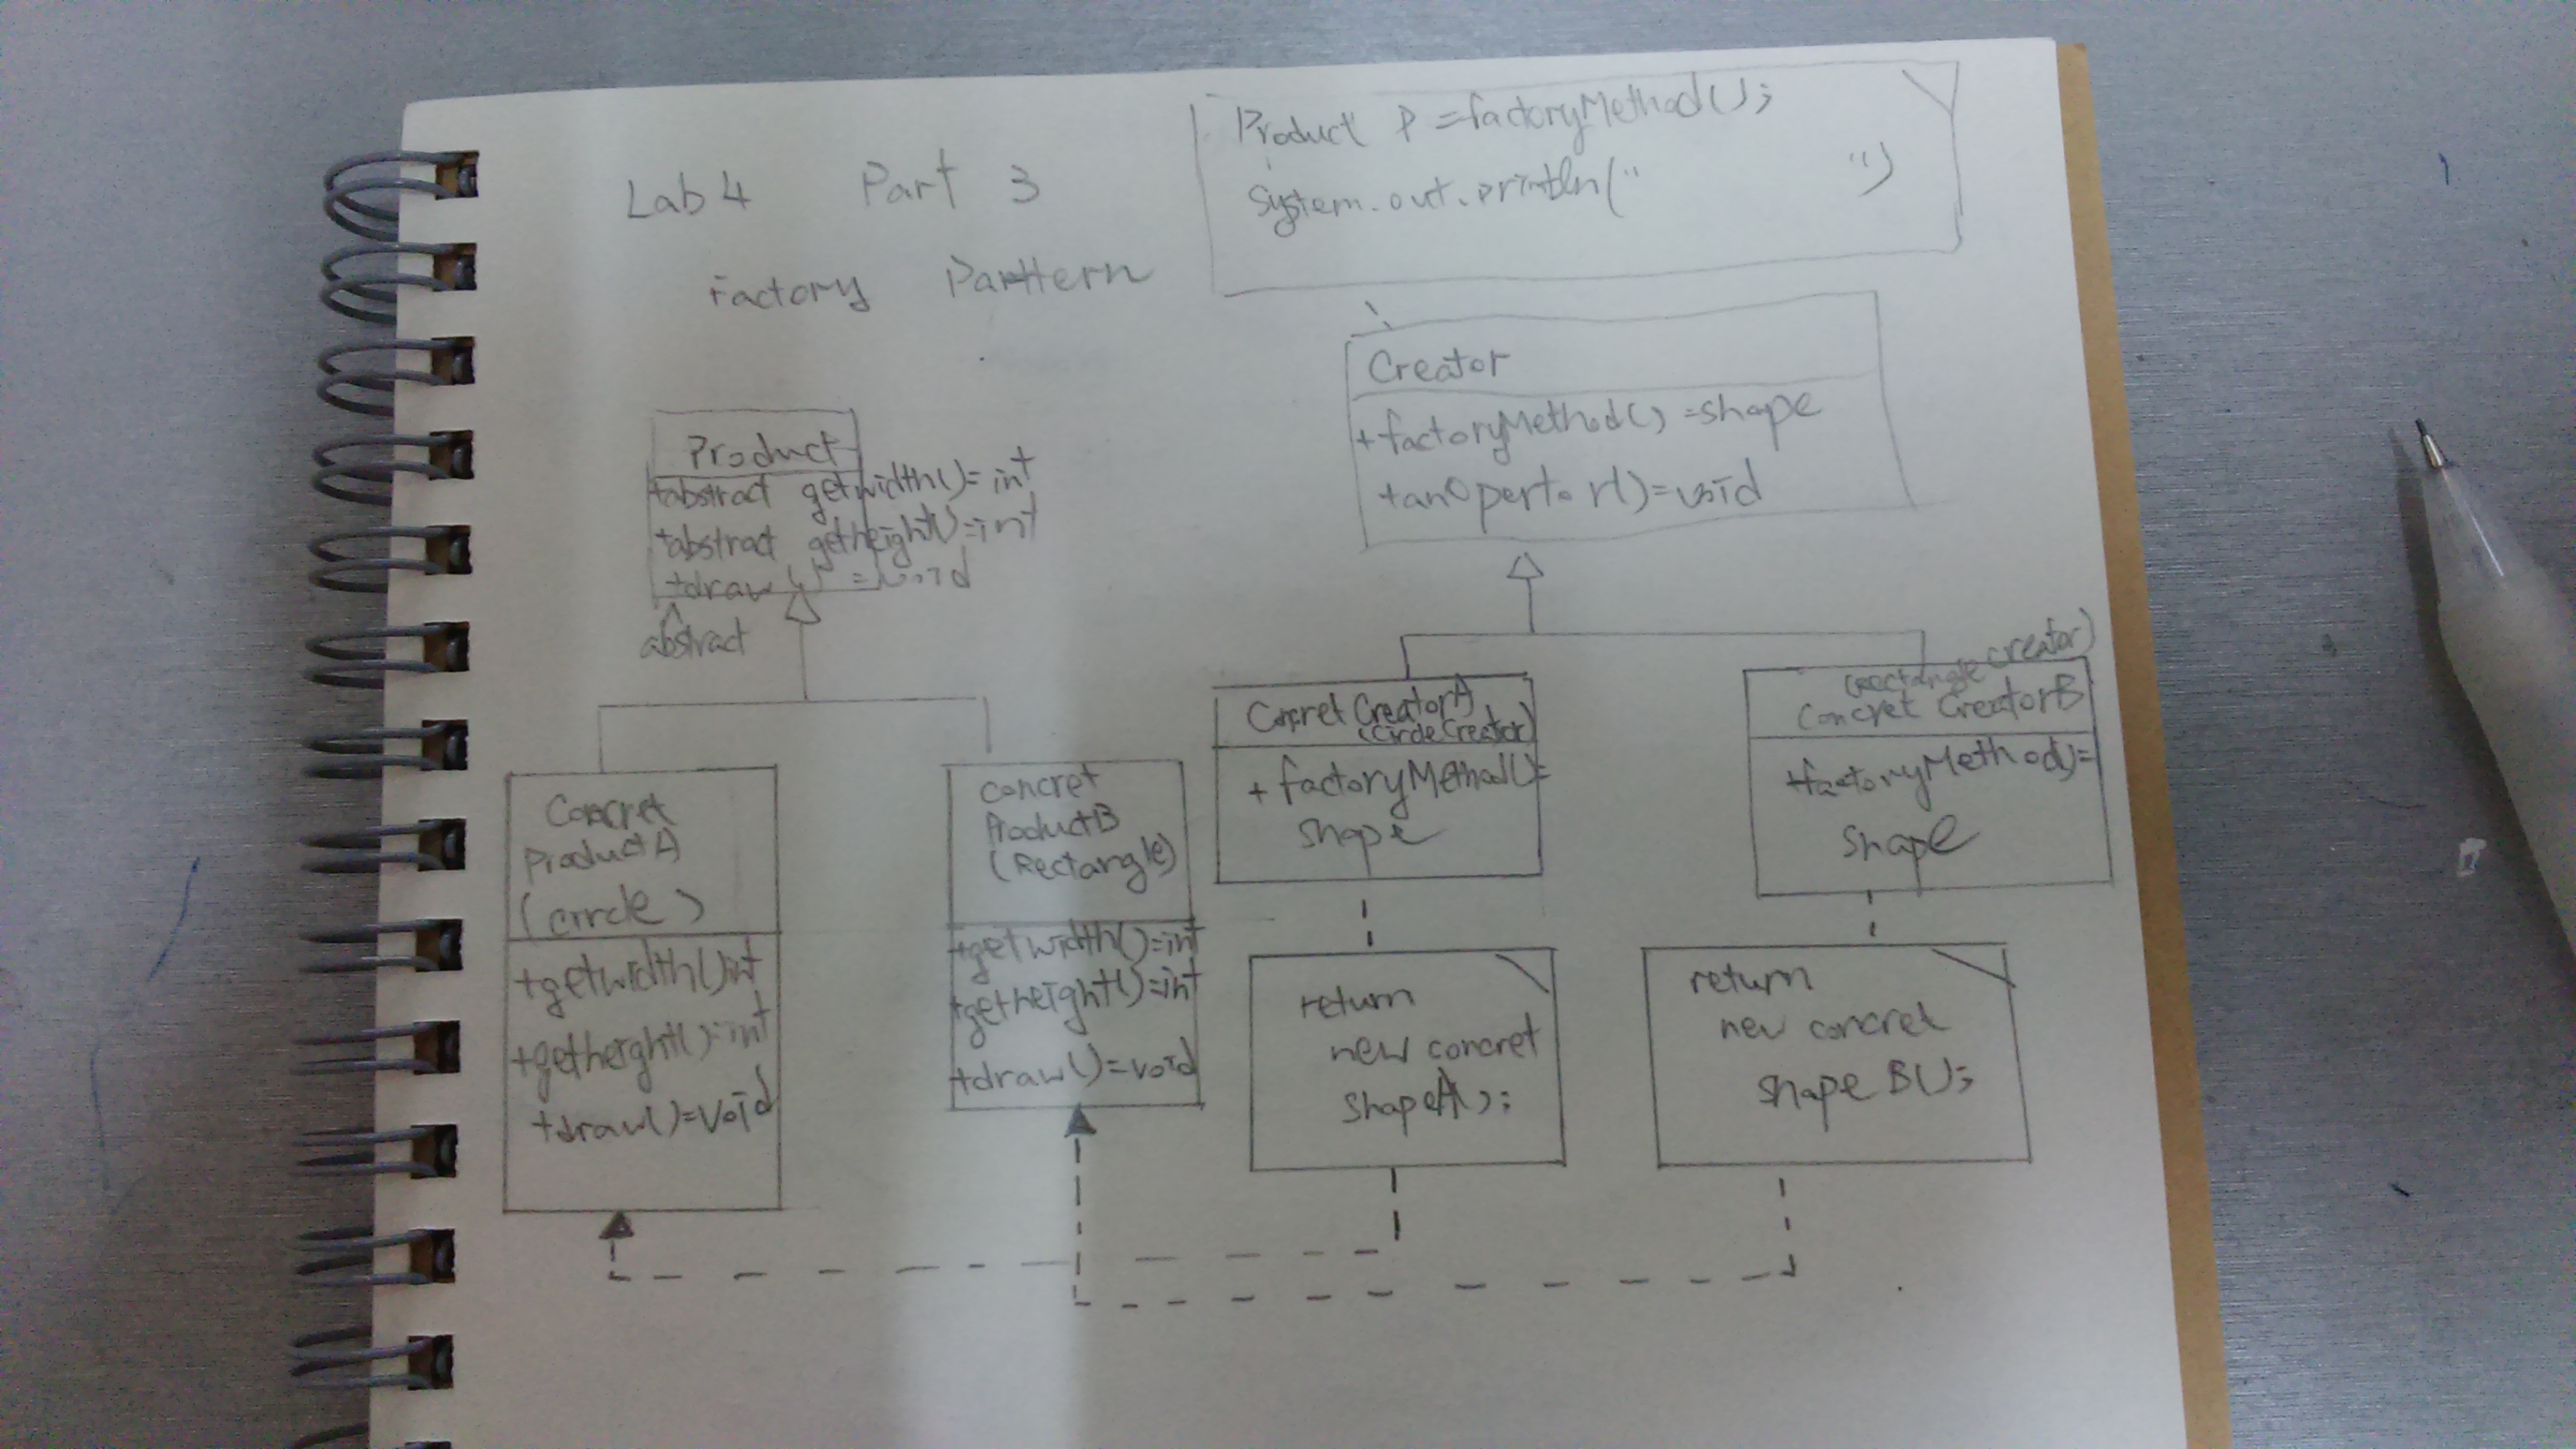 Lab 4 Part 3
Factory Parttern
Product P = factoryMethod();
System.out.println(" ")
Creator
+factoryMethod() =shape
+anOpertor()=void
Product
+abstract getwidth()= int
+abstract getheight()=int
+draw() = void
abstract
Concret
ProductA
(circle)
+getwidth()int
+getheight()=int
+draw()=void
concret
ProductB
(Rectangle)
+getwidth()=int
+getheight()=int
+draw()=void
Concret CreatorA
(CircleCreator)
+ factoryMethod()=
shape
return
new concret
shapeA();
(Rectangle Creator)
Concret CreatorB
+factoryMethod()=
shape
return
new concret
shape B();